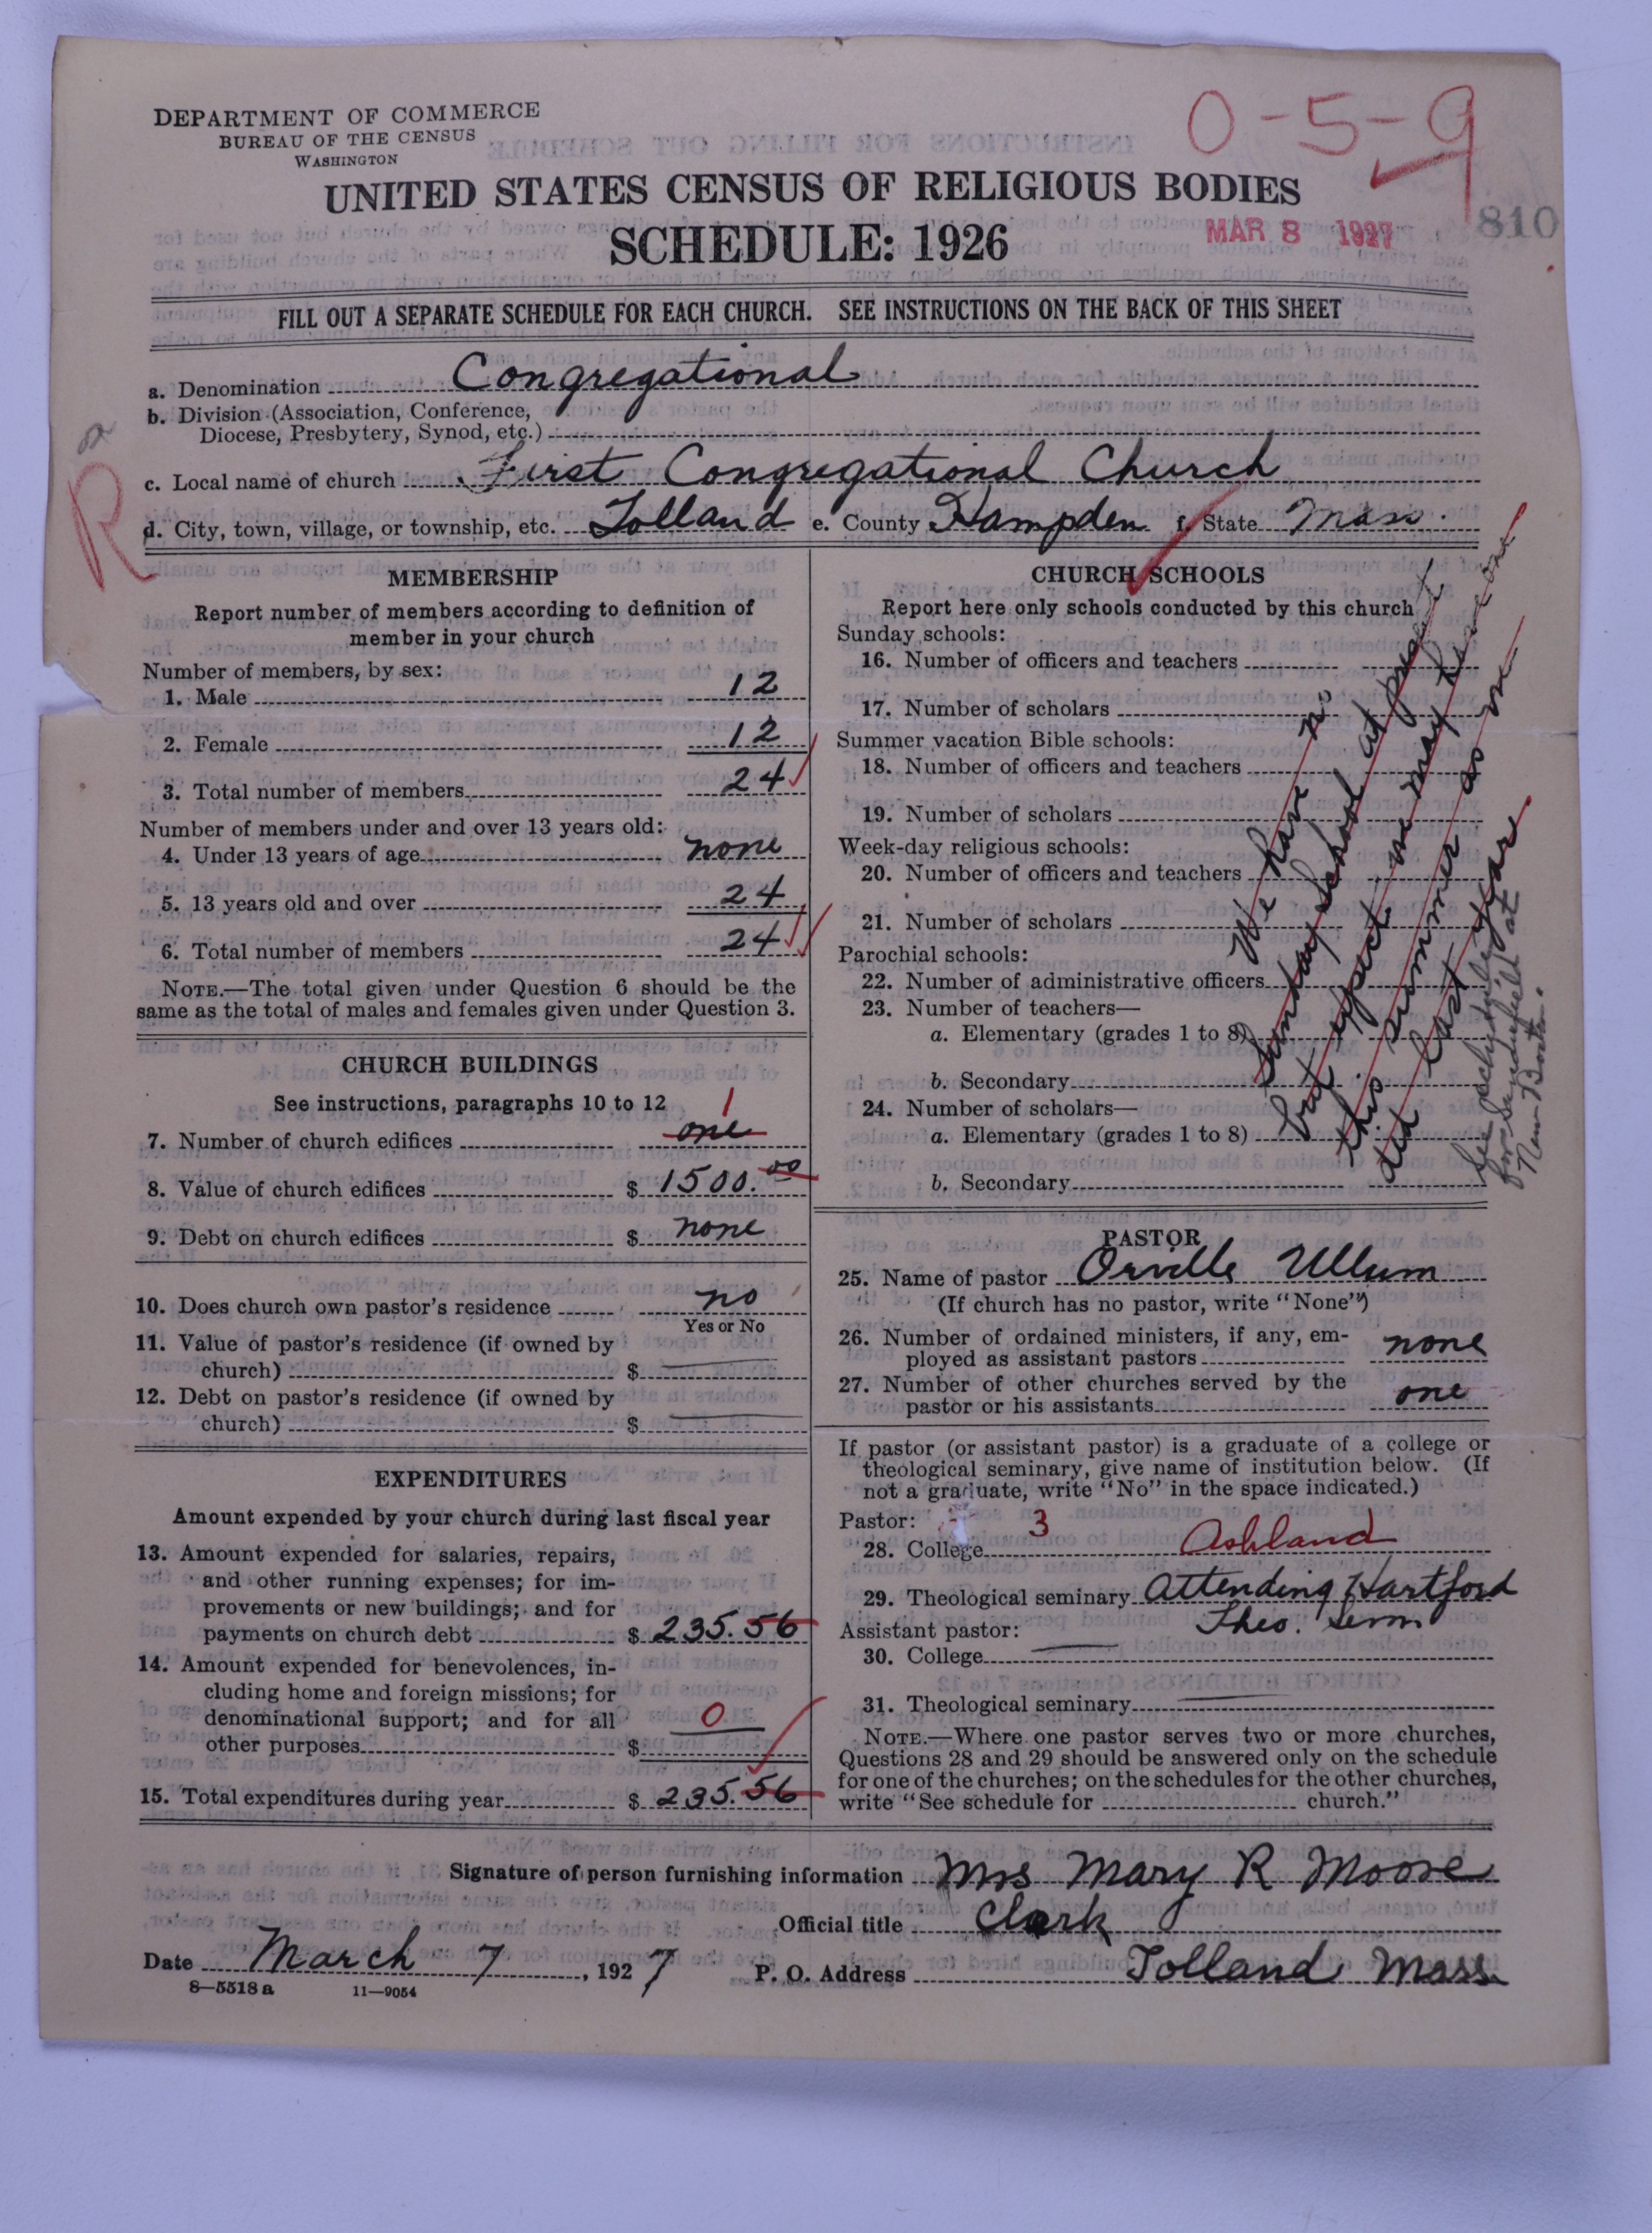 DEPARTMENT OF COMMERCE
BUREAU OF THE CENSUS
WASHINGTON
0-5-9
UNITED STATES CENSUS OF RELIGIOUS BODIES
SCHEDULE: 1926
MAR 8 1927
810
FILL OUT A SEPARATE SCHEDULE FOR EACH CHURCH. SEE INSTRUCTIONS ON THE BACK OF THIS SHEET
a. Denomination Congregational
b. Division (Association, Conference,
Diocese, Presbytery, Synod, etc.)
R
c. Local name of church First Congregational Church
d. City, town, village, or township, etc. Tolland e. County Hampden f. State Mass.
MEMBERSHIP
Report number of members according to definition of
member in your church
Number of members, by sex:
1. Male 12
2. Female 12
3. Total number of members 24
Number of members under and over 13 years old:
4. Under 13 years of age none
5. 13 years old and over 24
6. Total number of members 24
NOTE.—The total given under Question 6 should be the
same as the total of males and females given under Question 3.
CHURCH BUILDINGS
See instructions, paragraphs 10 to 12
1
7. Number of church edifices one
8. Value of church edifices $ 1500.00
9. Debt on church edifices $ none
10. Does church own pastor's residence no
Yes or No
11. Value of pastor's residence (if owned by
church) $
12. Debt on pastor's residence (if owned by
church) $
EXPENDITURES
Amount expended by your church during last fiscal year
13. Amount expended for salaries, repairs,
and other running expenses; for im-
provements or new buildings; and for
payments on church debt $ 235.56
14. Amount expended for benevolences, in-
cluding home and foreign missions; for
denominational support; and for all
other purposes $ 0
15. Total expenditures during year $ 235.56
CHURCH SCHOOLS
Report here only schools conducted by this church
Sunday schools:
16. Number of officers and teachers
17. Number of scholars
Summer vacation Bible schools:
18. Number of officers and teachers
19. Number of scholars
Week-day religious schools:
20. Number of officers and teachers
21. Number of scholars
Parochial schools:
22. Number of administrative officers
23. Number of teachers—
a. Elementary (grades 1 to 8)
b. Secondary
24. Number of scholars—
a. Elementary (grades 1 to 8)
b. Secondary
We have no
Sunday School at present
but expect we may have one
this summer as we
did last year
See schedule
for Sandisfield at
New Boston.
PASTOR
25. Name of pastor Orville Ullum
(If church has no pastor, write "None")
26. Number of ordained ministers, if any, em-
ployed as assistant pastors none
27. Number of other churches served by the
pastor or his assistants one
If pastor (or assistant pastor) is a graduate of a college or
theological seminary, give name of institution below. (If
not a graduate, write "No" in the space indicated.)
Pastor: 3
28. College Ashland
29. Theological seminary Attending Hartford
Theo. Sem
Assistant pastor:
30. College
31. Theological seminary
NOTE.—Where one pastor serves two or more churches,
Questions 28 and 29 should be answered only on the schedule
for one of the churches; on the schedules for the other churches,
write "See schedule for church."
Signature of person furnishing information Mrs Mary R Moore
Official title Clerk
Date March 7, 1927 P. O. Address Tolland Mass.
8—5518 a 11—9054